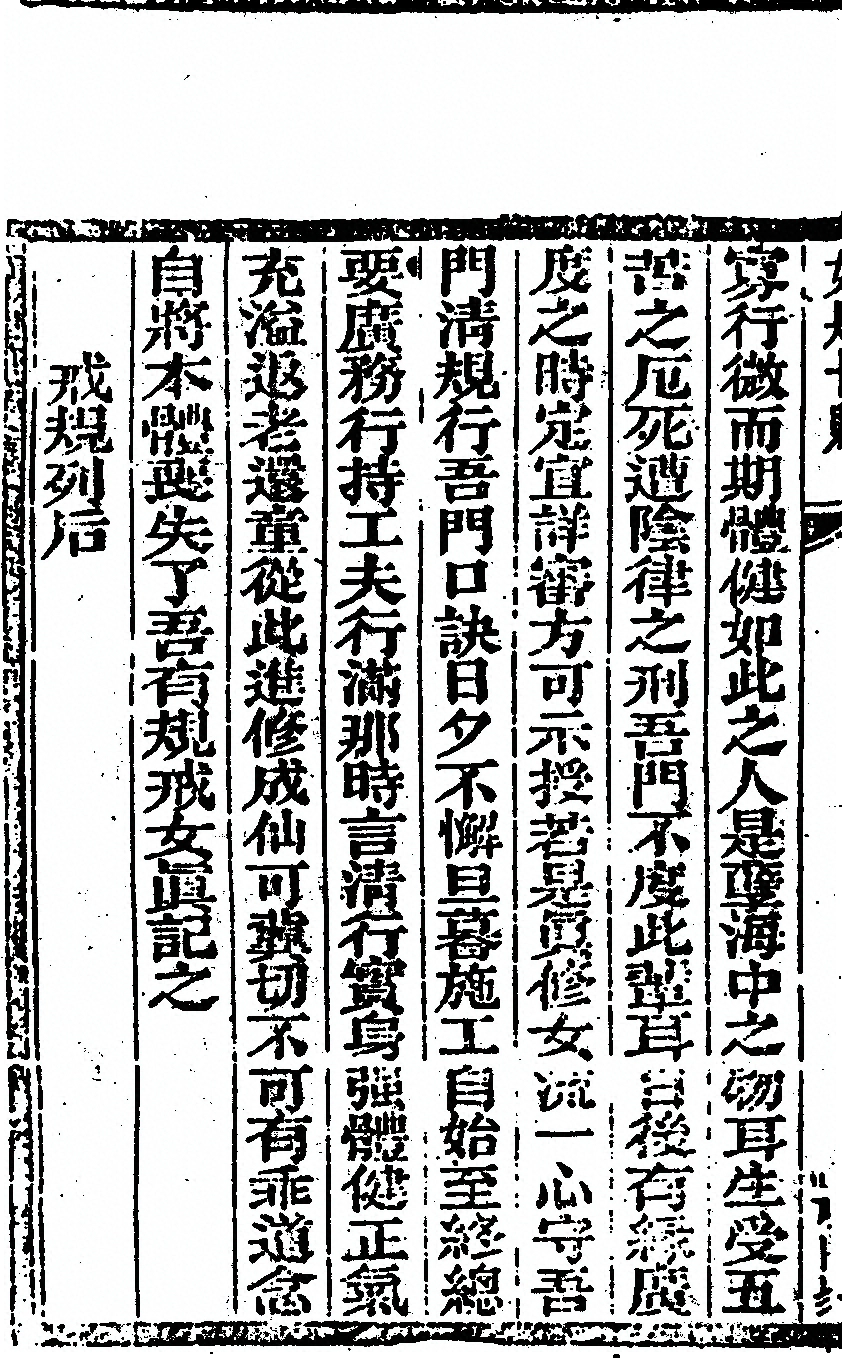 寡行微而期體健如此之人是孽海中之物耳生受五
苦之厄死遭陰律之刑吾門不度此輩耳日後有緣廣
度之時定宜詳審方可示授若是真修女流一心守吾
門清規行吾門口訣日夕不懈旦暮施工自始至終總
要廣務行持工夫行滿那時言清行實身强體健正氣
充溢返老還童從此進修成仙可冀切不可有乖道念
自將本體喪失了吾有規戒女眞記之
戒規列后